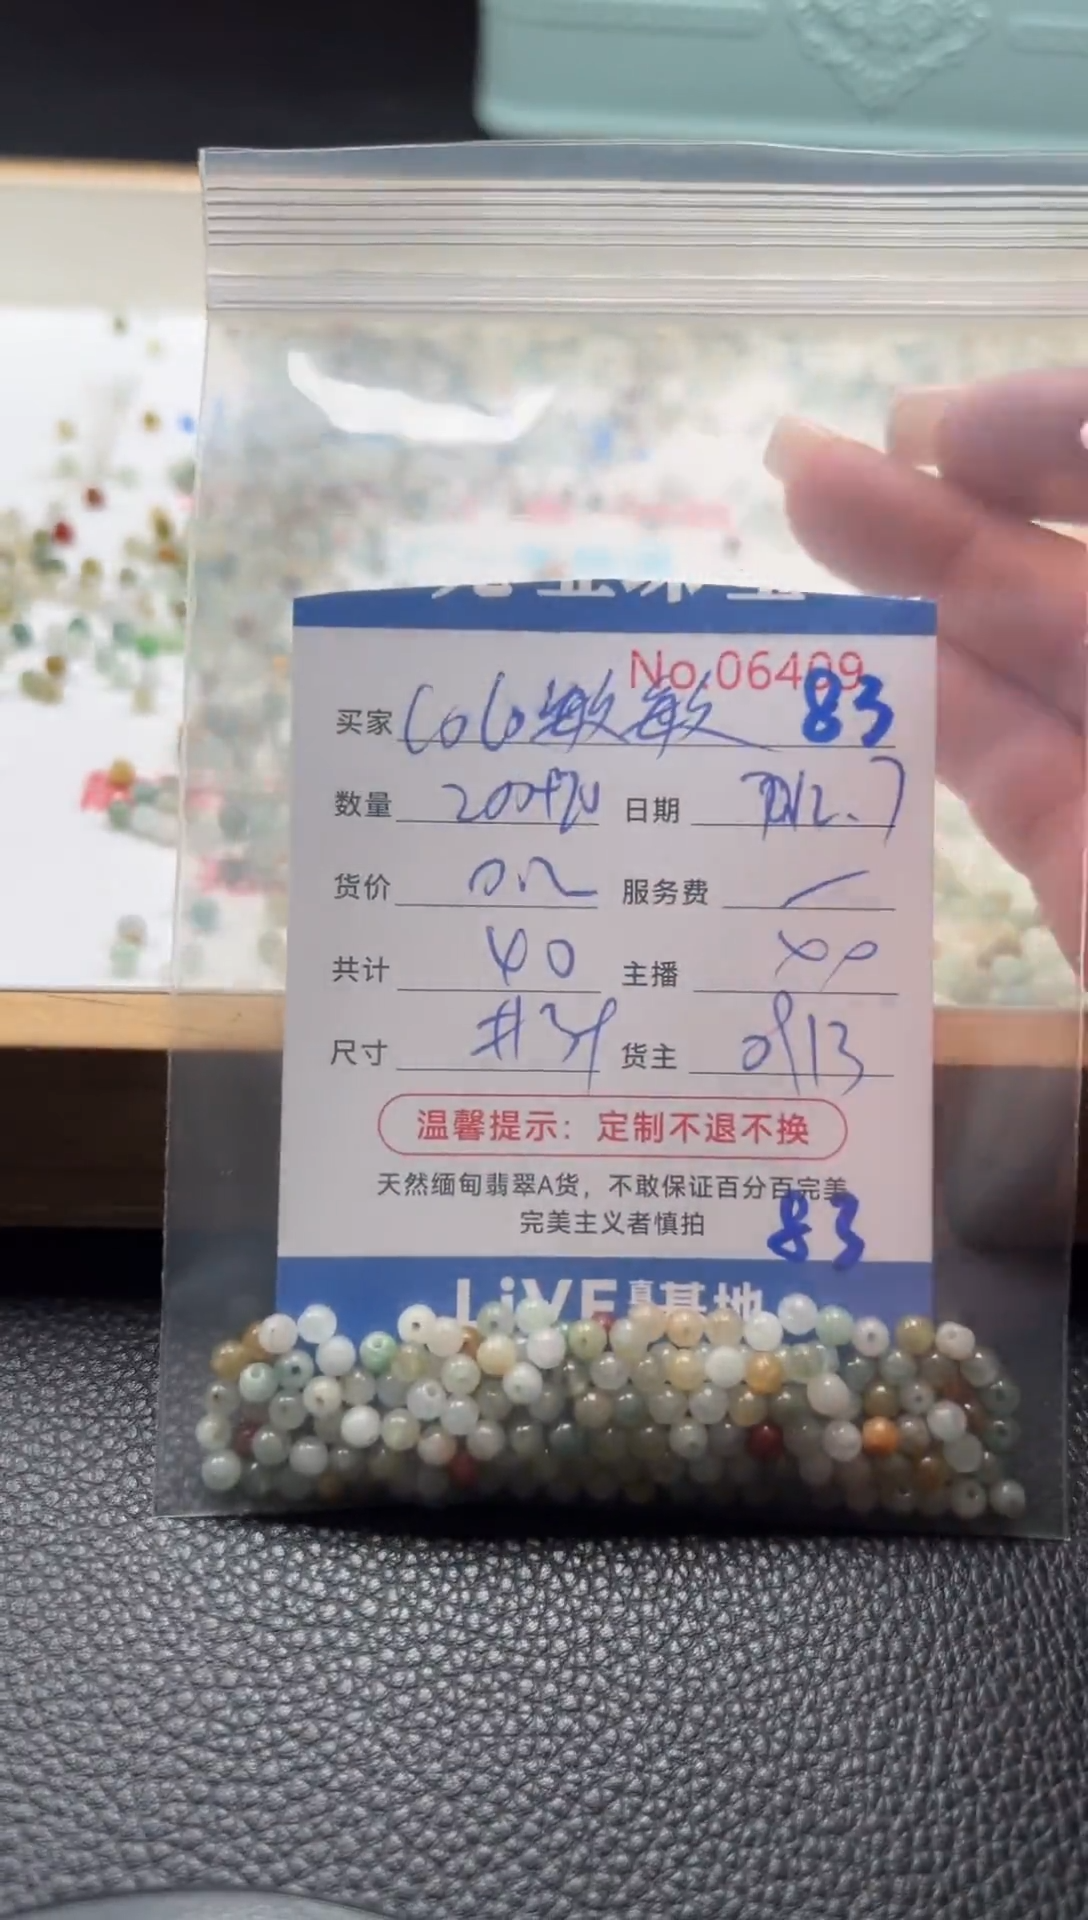 No.06409
买家 CoCo敏敏 83
数量 200 日期 12.7
货价 服务费
共计 40 主播
尺寸 货主
温馨提示：定制不退不换
天然缅甸翡翠A货，不敢保证百分百完美
完美主义者慎拍
83
LiVE 基地